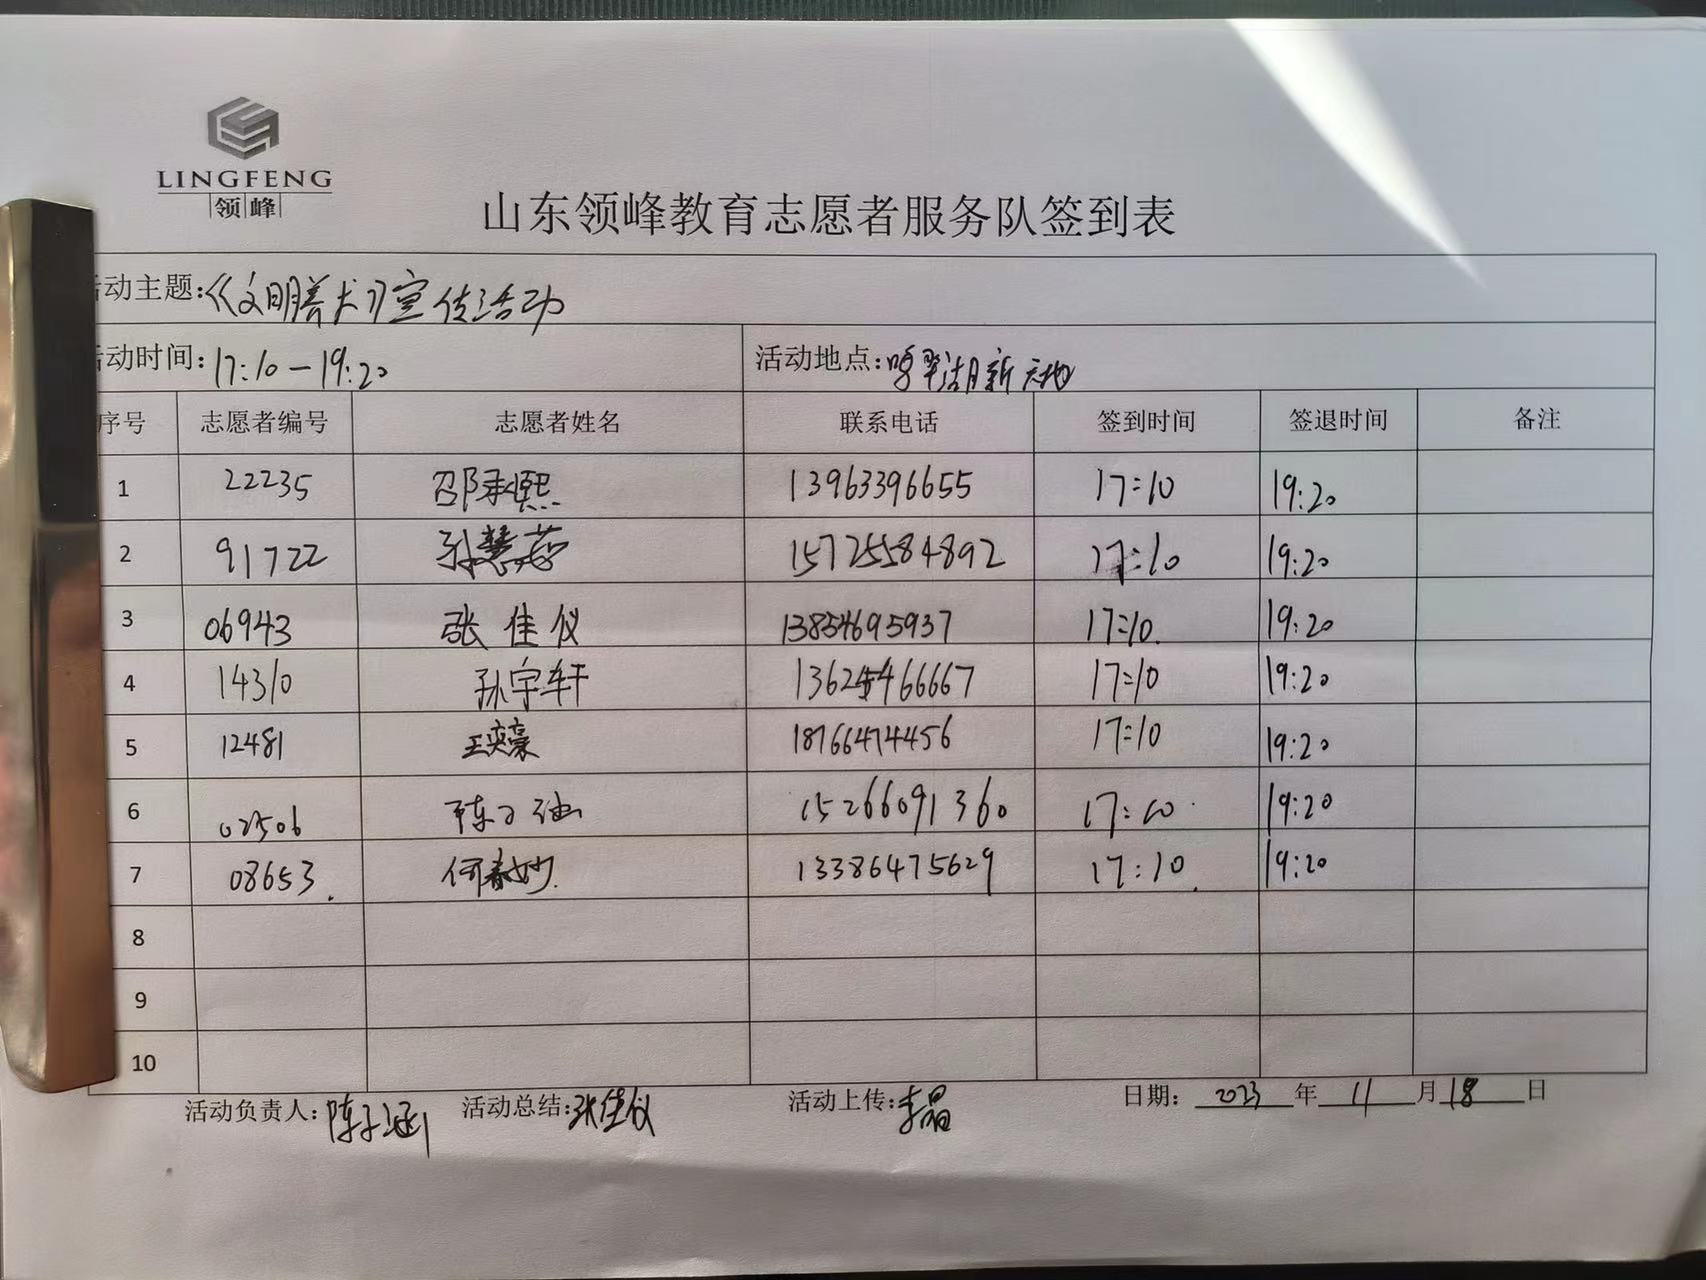 LINGFENG
领峰
山东领峰教育志愿者服务队签到表
活动主题:《文明膳食》宣传活动
活动时间:17:10-19:20 活动地点:翠湖新天地
序号 志愿者编号 志愿者姓名 联系电话 签到时间 签退时间 备注
1 22235 邵承熙 13963396655 17:10 19:20
2 91722 孙慧茹 15725584892 17:10 19:20
3 06943 张佳仪 13854695937 17:10 19:20
4 14310 孙宇轩 17:10 19:20
5 12481 王奕豪 18766474456 17:10 19:20
6 02506 陈子涵 15266091360 17:10 19:20
7 08653 何春妙 13386475629 17:10 19:20
8
9
10
活动负责人:陈子涵 活动总结:张佳仪 活动上传:李晶 日期: 2023 年 11 月 18 日